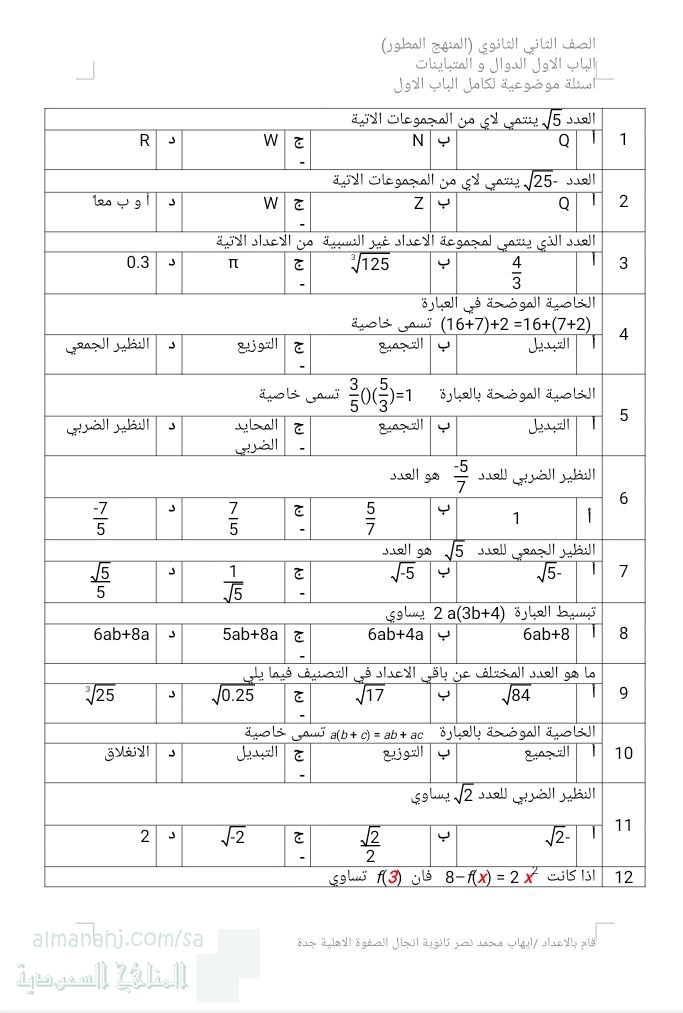 الصف الثاني الثانوي (المنهج المطور)
الباب الاول الدوال و المتباينات
اسئلة موضوعية لكامل الباب الاول
1 العدد √5 ينتمي لاي من المجموعات الاتية
أ Q ب N ج - W د R
2 العدد -√25 ينتمي لاي من المجموعات الاتية
أ Q ب Z ج - W د أ و ب معاً
3 العدد الذي ينتمي لمجموعة الاعداد غير النسبية من الاعداد الاتية
أ 4/3 ب ∛125 ج - π د 0.3
4 الخاصية الموضحة في العبارة
(16+7)+2 =16+(7+2) تسمى خاصية
أ التبديل ب التجميع ج - التوزيع د النظير الجمعي
5 الخاصية الموضحة بالعبارة 3/5()(5/3)=1 تسمى خاصية
أ التبديل ب التجميع ج - المحايد الضربي د النظير الضربي
6 النظير الضربي للعدد -5/7 هو العدد
أ 1 ب 5/7 ج - 7/5 د -7/5
7 النظير الجمعي للعدد √5 هو العدد
أ √5- ب √-5 ج - 1/√5 د √5/5
8 تبسيط العبارة 2 a(3b+4) يساوي
أ 6ab+8 ب 6ab+4a ج - 5ab+8a د 6ab+8a
9 ما هو العدد المختلف عن باقي الاعداد في التصنيف فيما يلي
أ √84 ب √17 ج - √0.25 د ∛25
10 الخاصية الموضحة بالعبارة a(b + c) = ab + ac تسمى خاصية
أ التجميع ب التوزيع ج - التبديل د الانغلاق
11 النظير الضربي للعدد √2 يساوي
أ √2- ب √2/2 ج - √-2 د 2
12 اذا كانت 8−f(x) = 2 x² فان f(3) تساوي
قام بالاعداد /ايهاب محمد نصر ثانوية انجال الصفوة الاهلية جدة
almanahj.com/sa
المناهج السعودية